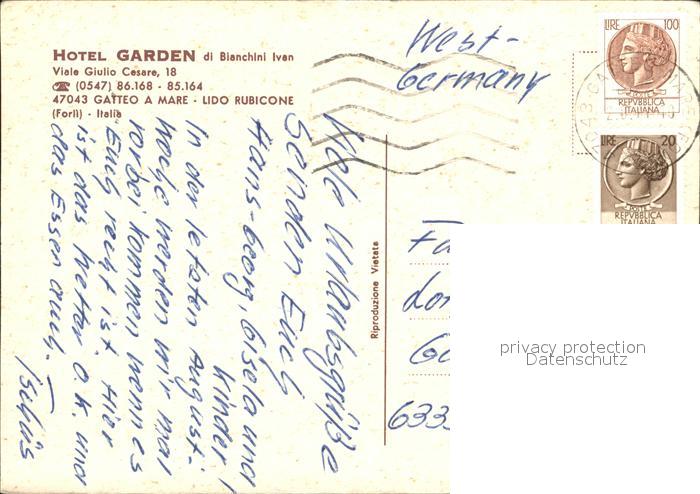 HOTEL GARDEN di Bianchini Ivan
Viale Giulio Cesare, 18
☎ (0547) 86.168 - 85.164
47043 GATTEO A MARE - LIDO RUBICONE
(Forlì) - Italia
West-
Germany
LIRE 100
POSTE
REPVBBLICA
ITALIANA
LIRE 20
POSTE
REPVBBLICA
ITALIANA
Viele Urlaubsgrüße
senden Euch
Hans-Georg, Gisela und
Kinder!
In der letzten August-
woche werden wir mal
vorbei kommen wenn es
Euch recht ist. Hier
ist das Wetter o.k. und
das Essen auch. –
Tschüs
Riproduzione Vietata
Fa
Lo
633
privacy protection
Datenschutz